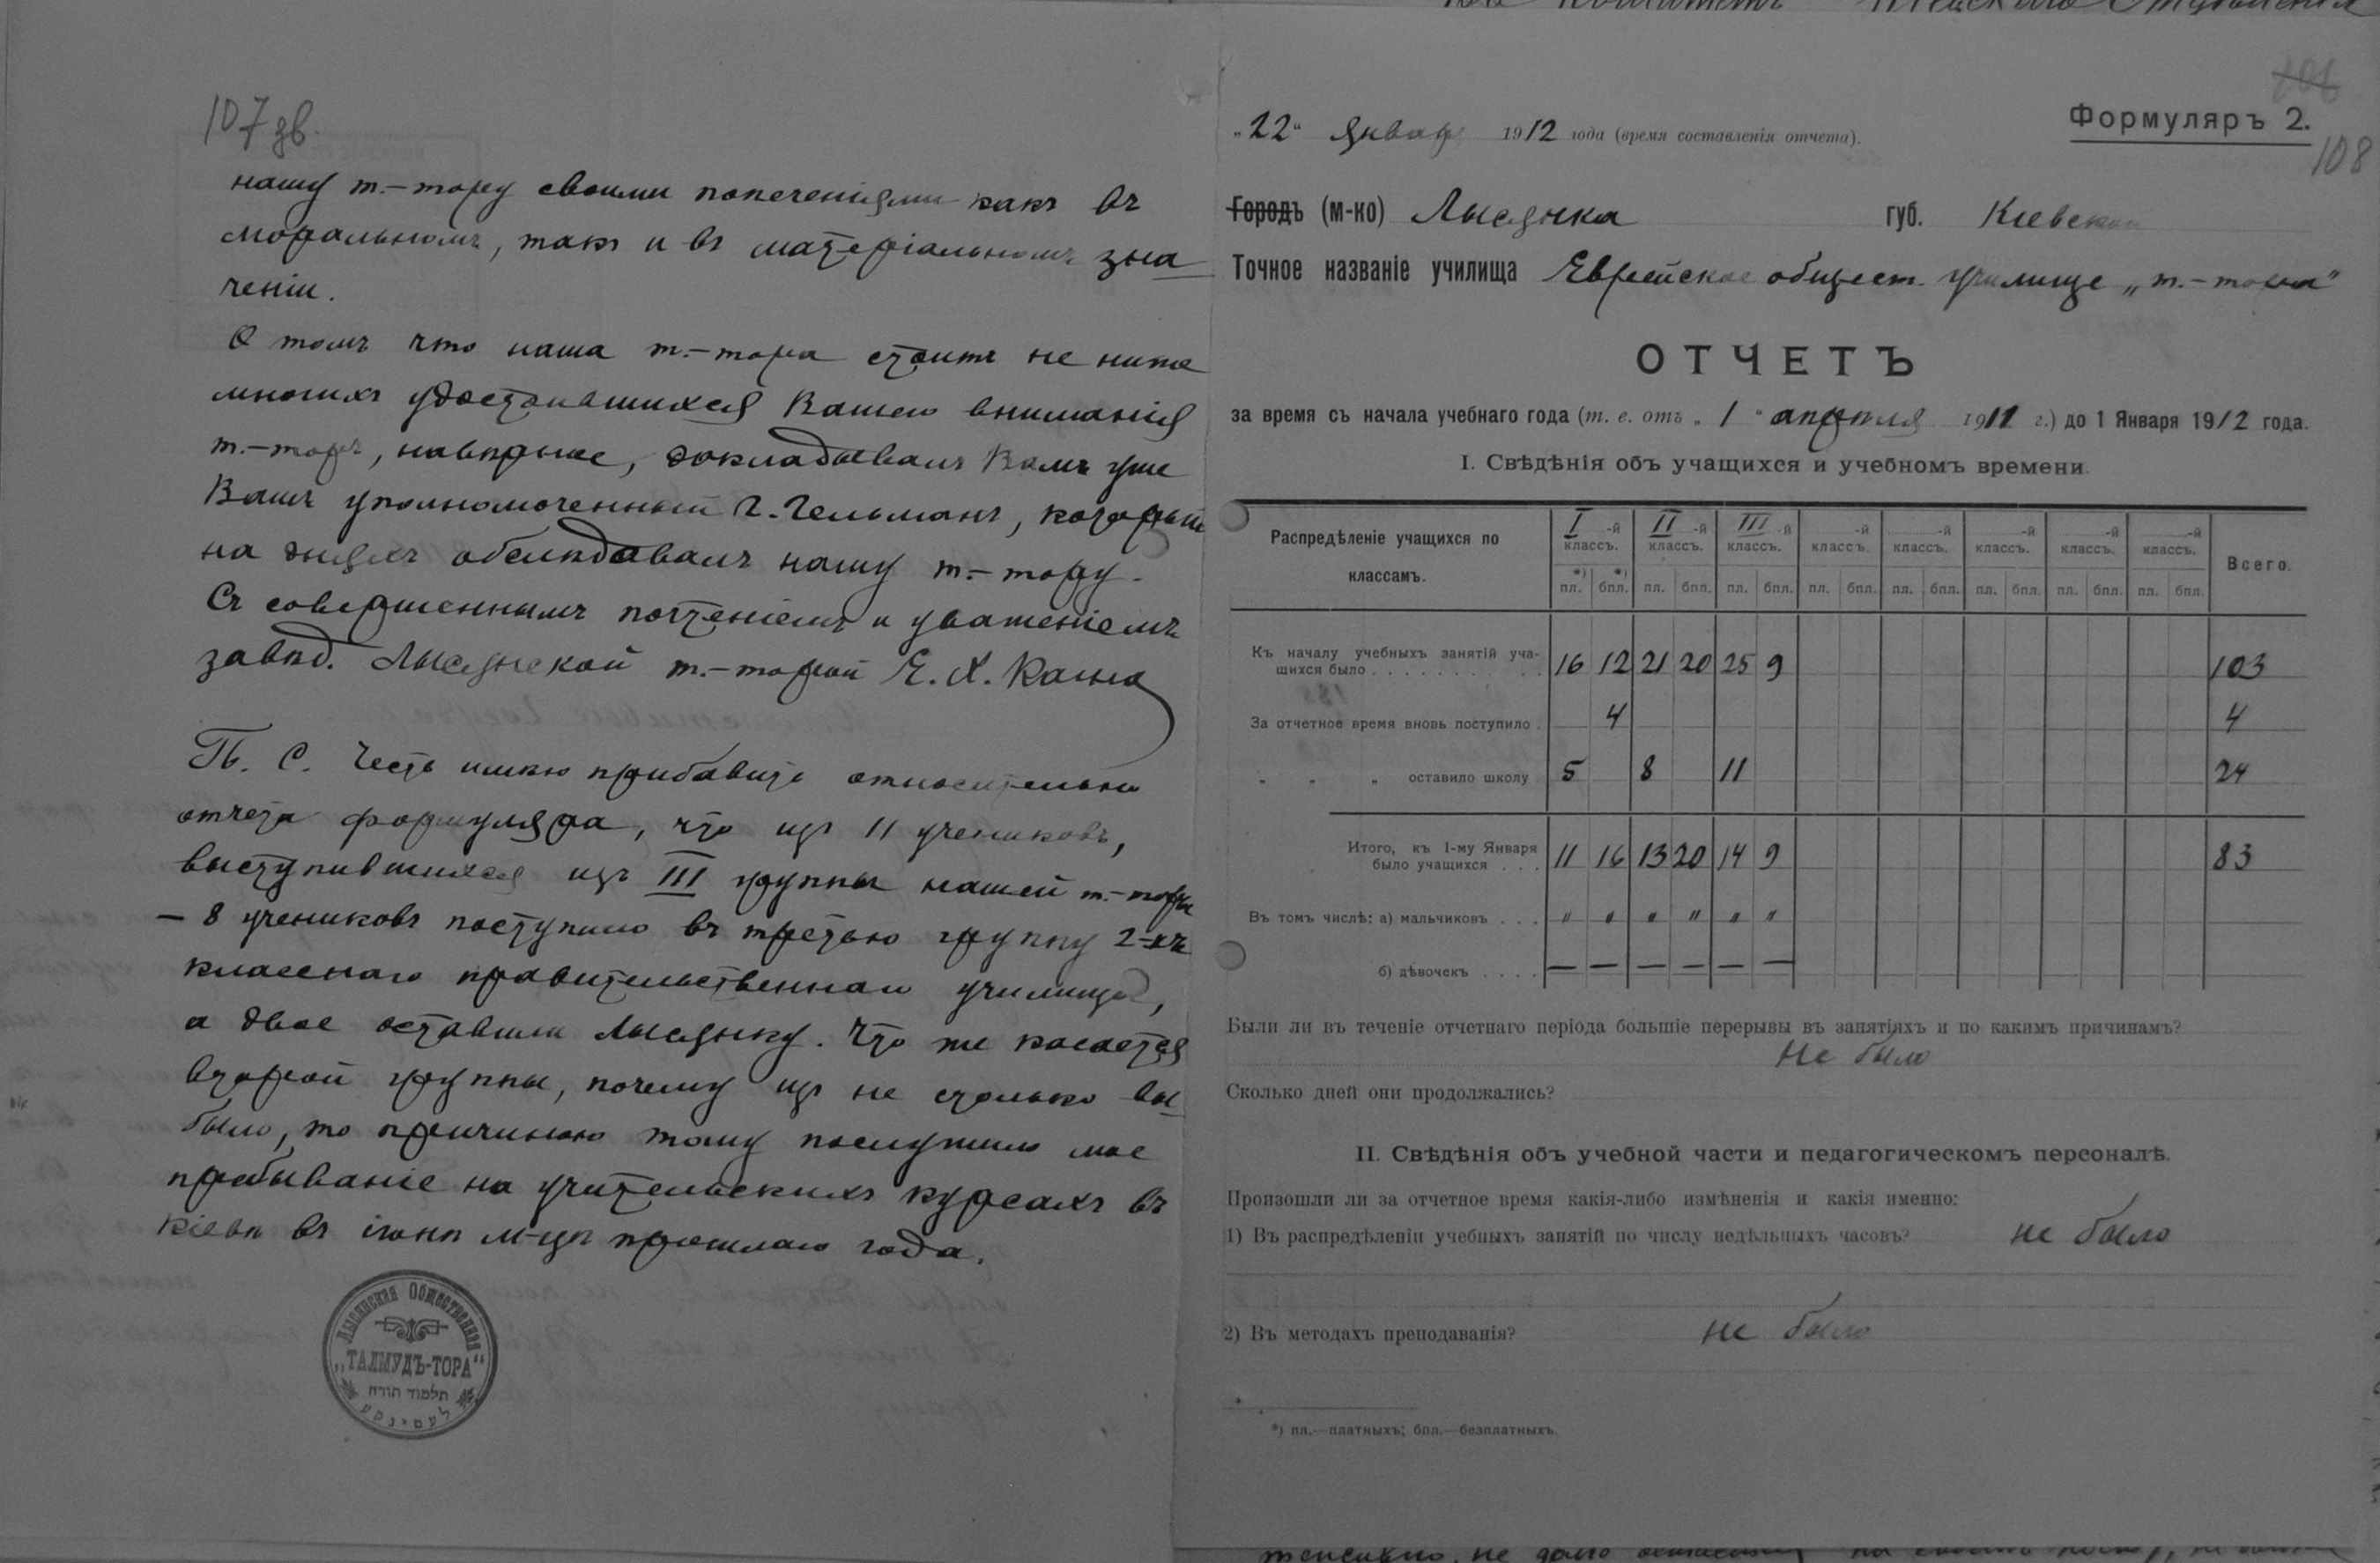 107 зв.
нашу т.-тору своими попеченіями какъ въ
моральномъ, такъ и въ матеріальномъ зна
ченіи.
О томъ что наша т.-тора стоитъ не ниже
многихъ удостоившихся Вашего вниманія
т.-торъ, навѣрное, докладывалъ Вамъ уже
Вашъ уполномоченный Г. Гельманъ, который
на дняхъ обслѣдавалъ нашу т.-тору.
Съ совершеннымъ почтеніемъ и уваженіемъ
завѣд. Лысянской т.-торой Е. Х.
П. С. Честь имѣю прибавить относительно
отчета формуляра, что изъ 11 учениковъ,
выступившихся изъ III группы нашей т.-торы
— 8 учениковъ поступило въ третью группу 2-хъ
класснаго правительственнаго училища,
а двое оставили Лысянку. Что же касается
второй группы, почему изъ не столько вы
было, то причиною тому послужило мое
пребываніе на учительскихъ курсахъ въ
Кіевѣ въ іюнѣ м-цѣ прошлаго года.
Лысянская Общественная
„ТАЛМУДЪ-ТОРА“
תלמוד תורה
לעסינקע
„22“ Январ 1912 года (время составленія отчета).
Формуляръ 2.
108
Городъ (м-ко) Лысянка губ. Кіевской
Точное названіе училища Еврейское общест. училище „т.-тора“
ОТЧЕТЪ
за время съ начала учебнаго года (т. е. отъ „1“ апрѣля 1911 г.) до 1 Января 1912 года.
I. Свѣдѣнія объ учащихся и учебномъ времени.
Распредѣленіе учащихся по классамъ.
I -й классъ. II -й классъ. III -й классъ. -й классъ. -й классъ. -й классъ. -й классъ. -й классъ. Всего.
*) пл. *) бпл. пл. бпл. пл. бпл. пл. бпл. пл. бпл. пл. бпл. пл. бпл. пл. бпл.
Къ началу учебныхъ занятій уча-
щихся было . . . 16 12 21 20 25 9 103
За отчетное время вновь поступило . 4 4
„ „ „ оставило школу 5 8 11 24
Итого, къ 1-му Января
было учащихся . . . 11 16 13 20 14 9 83
Въ томъ числѣ: а) мальчиковъ . . . " " " " " "
б) дѣвочекъ . . . . — — — — — —
Были ли въ теченіе отчетнаго періода большіе перерывы въ занятіяхъ и по какимъ причинамъ?
Не было
Сколько дней они продолжались?
II. Свѣдѣнія объ учебной части и педагогическомъ персоналѣ.
Произошли ли за отчетное время какія-либо измѣненія и какія именно:
1) Въ распредѣленіи учебныхъ занятій по числу недѣльныхъ часовъ? не было
2) Въ методахъ преподаванія? не было
*) пл.—платныхъ; бпл.—безплатныхъ.